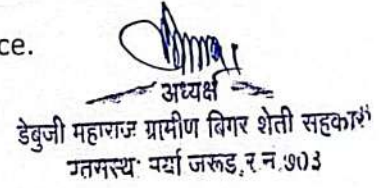 ce.
अध्यक्ष
डेबुजी महाराज ग्रामीण बिगर शेती सहकारी
पतसंस्था मर्या जरूड, र.न.७०३